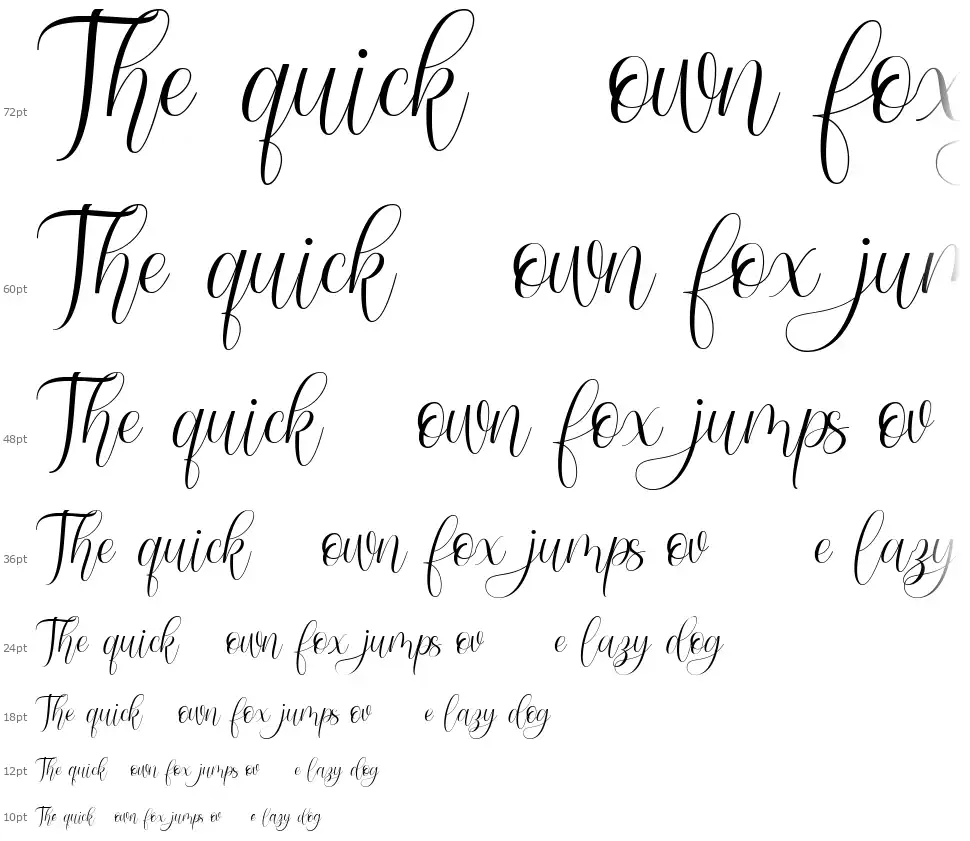 72pt The quick own fox
60pt The quick own fox jum
48pt The quick own fox jumps ov
36pt The quick own fox jumps ov e lazy
24pt The quick own fox jumps ov e lazy dog
18pt The quick own fox jumps ov e lazy dog
12pt The quick own fox jumps ov e lazy dog
10pt The quick own fox jumps ov e lazy dog